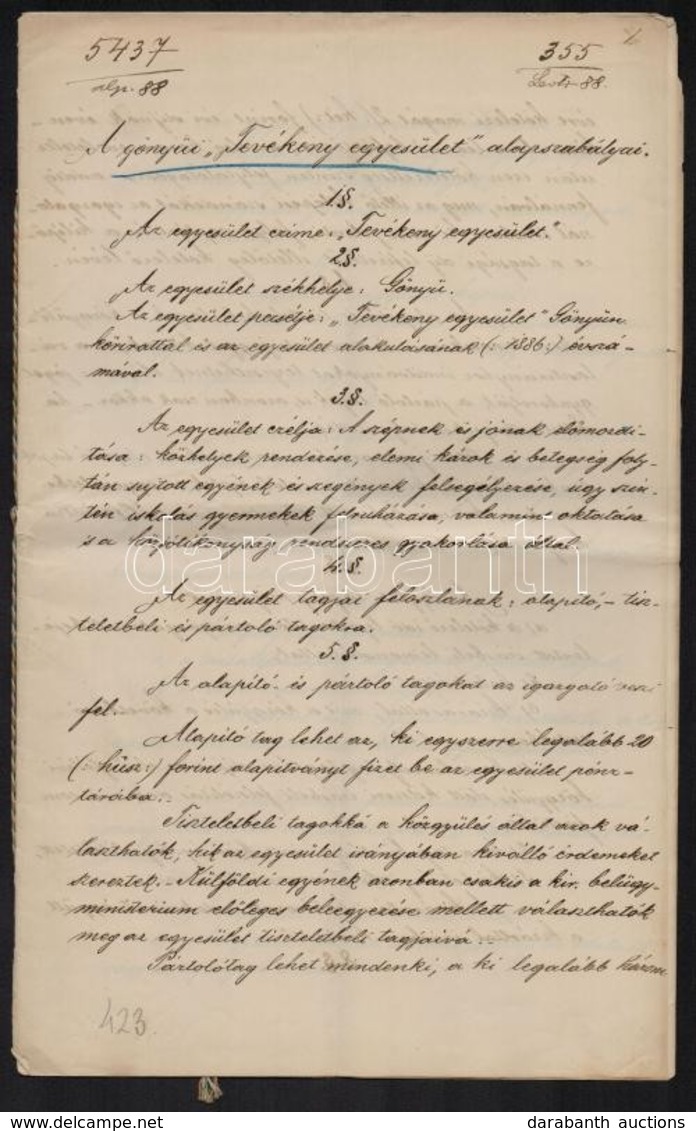 5437
alp. 88
355
Levt. 88.
A gönyüi „Tevékeny egyesület" alapszabályai.
1.§.
Az egyesület czime: „Tevékeny egyesület."
2.§.
Az egyesület székhelye: Gönyü.
Az egyesület pecsétje: „Tevékeny egyesület" Gönyün
körirattal és az egyesület alakulásának (: 1886 :) évszá-
mával.
3.§.
Az egyesület czélja: A szépnek és jónak előmozdi-
tása: közhelyek rendezése, elemi károk és betegség foly-
tán sujtott egyének és szegények felsegélyezése, úgy szin-
tén iskolás gyermekek felruházása, valamint oktatása
is a közjótékonyság rendszeres gyakorlása által.
darabanth
4.§.
Az egyesület tagjai feloszlanak: alapitó,- tisz-
teletbeli és pártoló tagokra.
5.§.
Az alapitó- és pártoló tagokat az igazgató veszi
fel.
Alapitó tag lehet az, ki egyszerre legalább 20
(: húsz :) forint alapitványt fizet be az egyesület pénz-
tárába.
Tiszteletbeli tagokká a közgyülés által azok vá-
laszthatók, kik az egyesület irányában kiválló érdemeket
szereztek. - Külföldi egyének azonban csakis a kir. belügy-
ministerium előleges beleegyezése mellett választhatók
meg az egyesület tiszteletbeli tagjaivá.
Pártolótag lehet mindenki, a ki legalább három
423.
www.darabanth.com
darabanth auctions